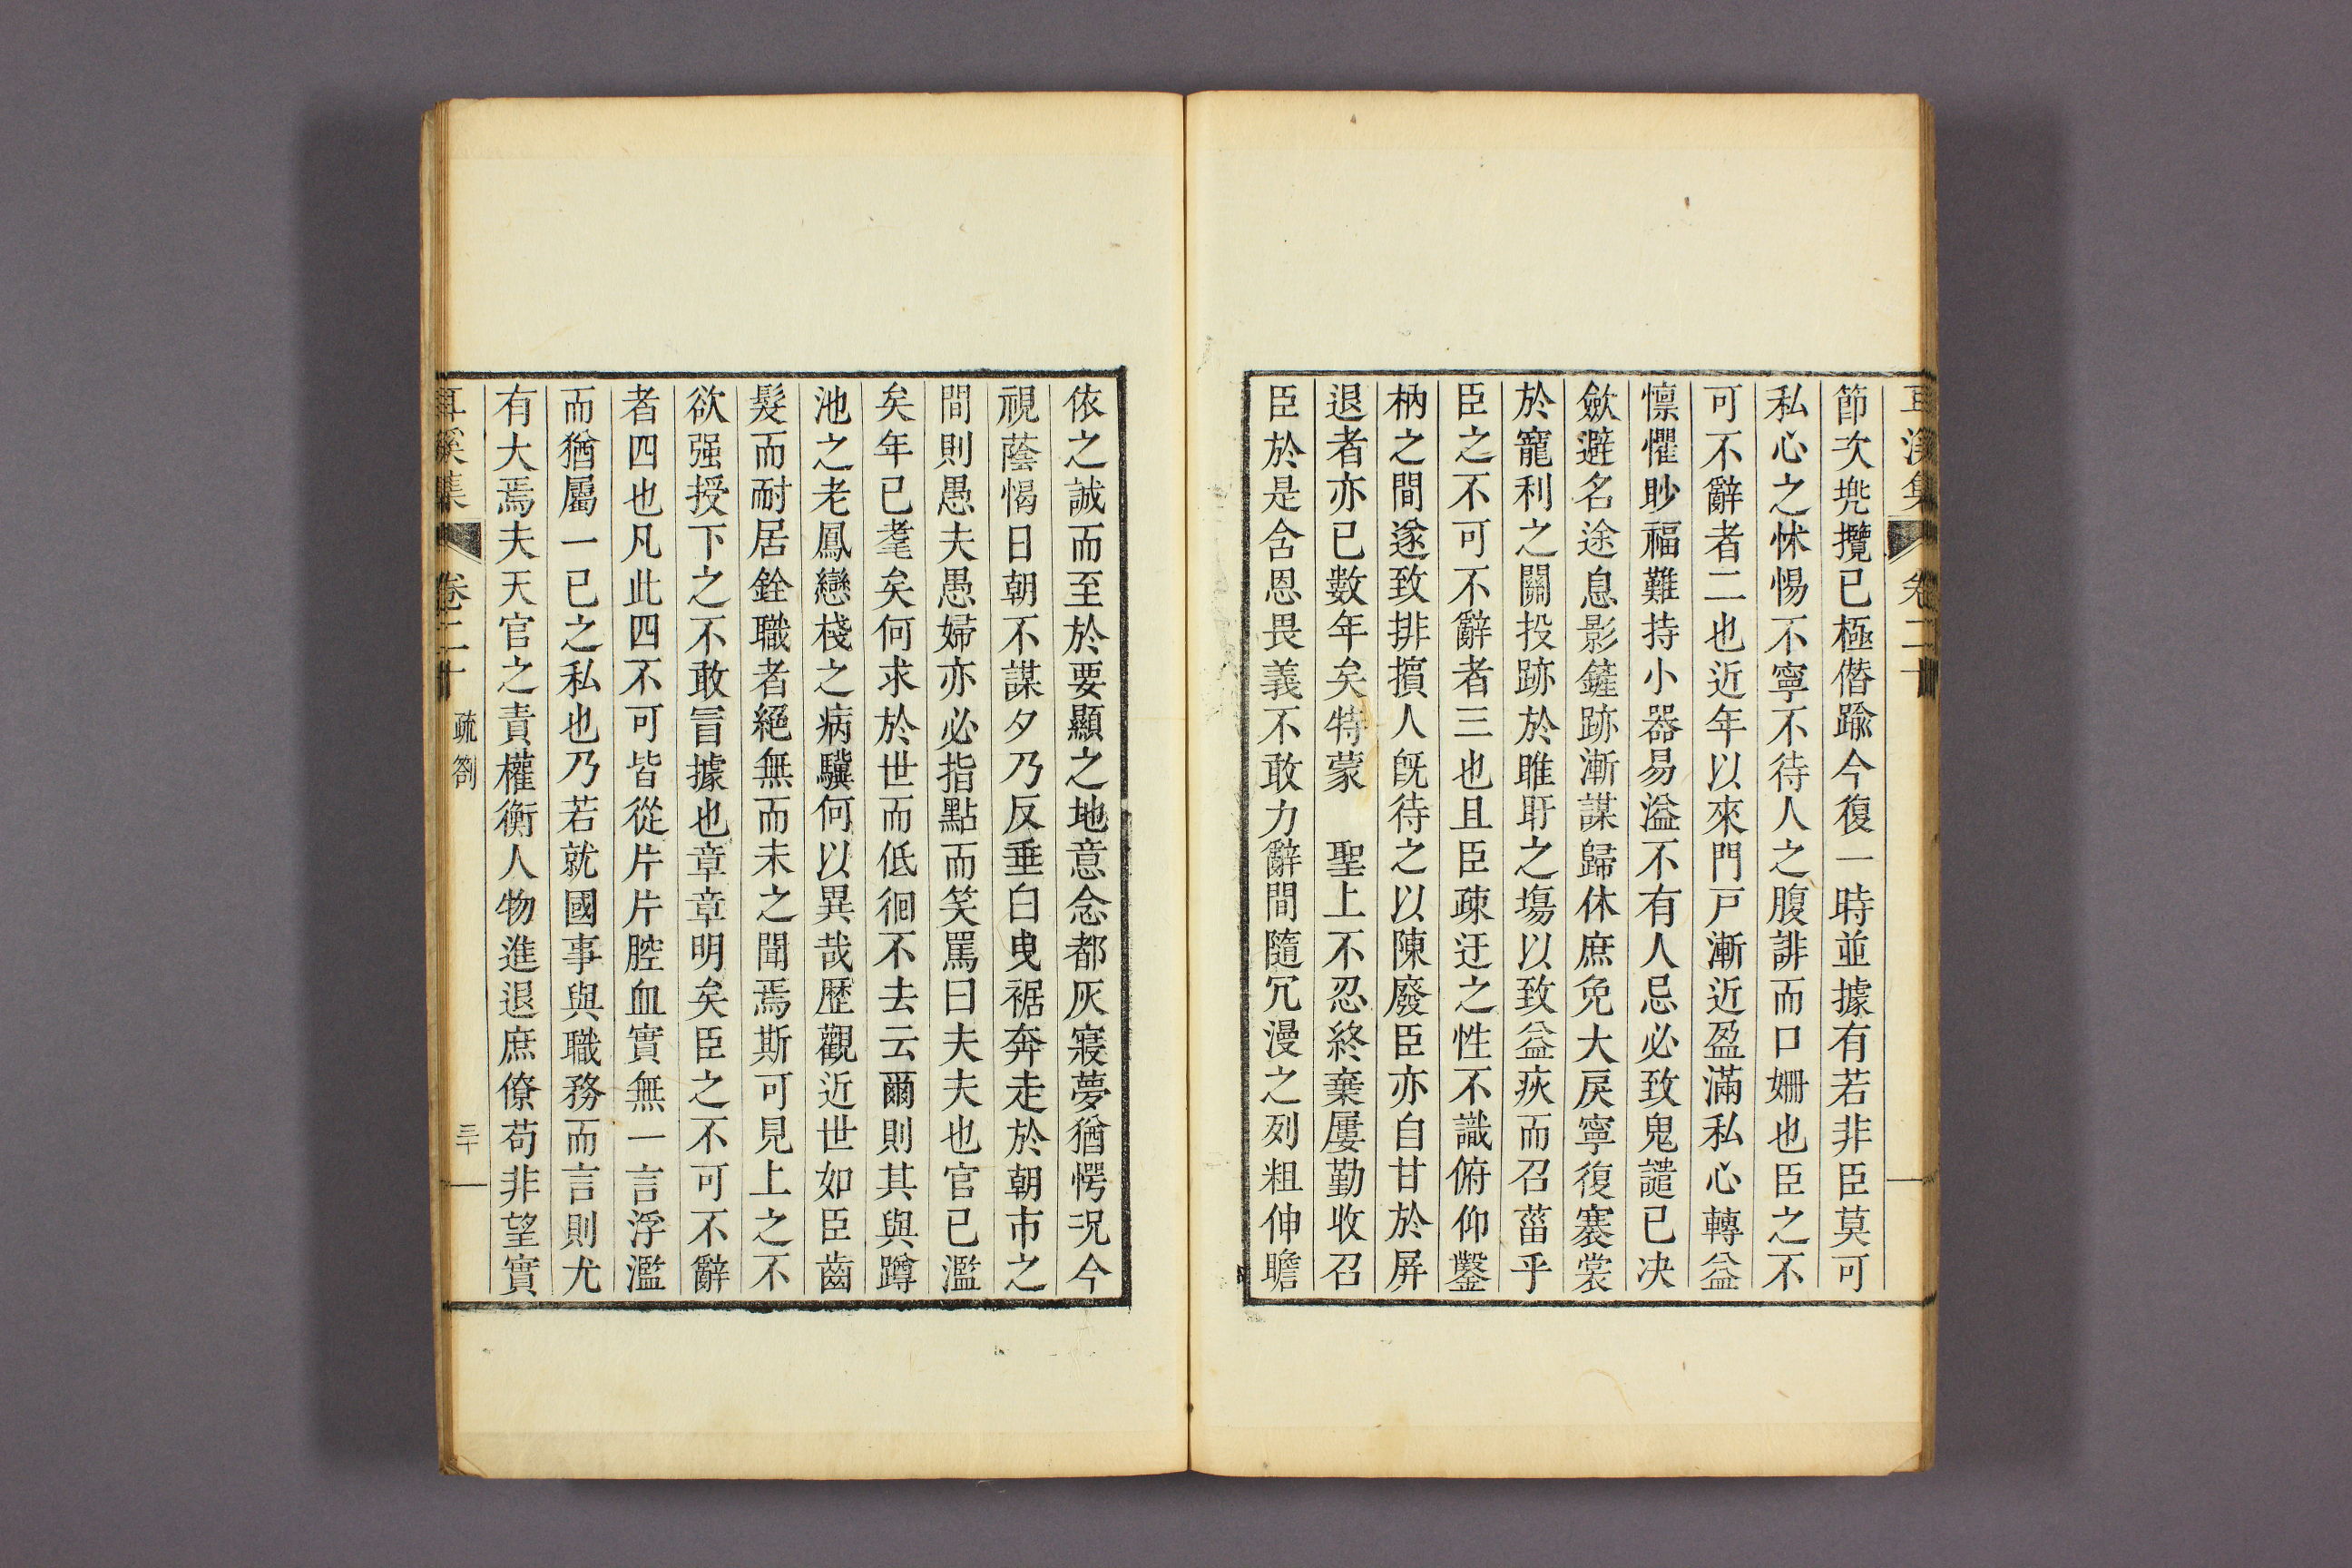 耳溪集 卷二十
節次兠攬已極僭踰今復一時並據有若非臣莫可
私心之怵惕不寧不待人之腹誹而口姍也臣之不
可不辭者二也近年以來門戸漸近盈滿私心轉益
懍懼眇福難持小器易溢不有人忌必致鬼譴已决
歛避名途息影鏟跡漸謀歸休庶免大戾寧復褰裳
於寵利之關投跡於睢盱之塲以致益疢而召菑乎
臣之不可不辭者三也且臣疎迂之性不識俯仰鑿
枘之間遂致排擯人旣待之以陳廢臣亦自甘於屏
退者亦已數年矣特蒙 聖上不忍終棄屢勤收召
臣於是含恩畏義不敢力辭間隨冗漫之列粗伸瞻
依之誠而至於要顯之地意念都灰寢夢猶愕况今
視蔭愒日朝不謀夕乃反垂白曳裾奔走於朝市之
間則愚夫愚婦亦必指點而笑罵曰夫夫也官已濫
矣年已耄矣何求於世而低徊不去云爾則其與蹲
池之老鳳戀棧之病驥何以異哉歷觀近世如臣齒
髮而耐居銓職者絕無而未之聞焉斯可見上之不
欲强授下之不敢冒據也章章明矣臣之不可不辭
者四也凡此四不可皆從片片腔血實無一言浮濫
而猶屬一己之私也乃若就國事與職務而言則尤
有大焉夫天官之責權衡人物進退庶僚苟非望實
耳溪集 卷二十 疏劄 三十